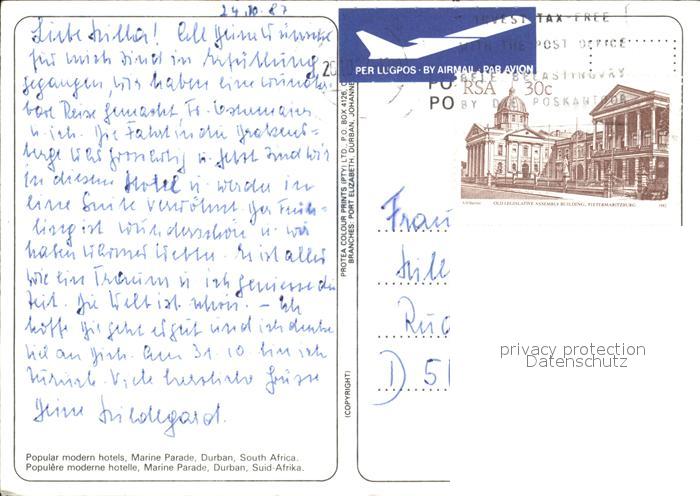 24.10.87
Liebe Milla! All Deine Wünsche
für mich sind in Erfüllung
gegangen, wir haben eine wunder-
bare Reise gemacht, Fr.
u. ich. Die Fahrt in die Drakens-
berge war grossartig u. jetzt sind wir
in diesem Hotel u. werden in
eine Suite verwöhnt. Der Früh-
ling ist wunderschön u. wir
haben
wie ein Traum u. ich geniesse die
Zeit. Die Welt ist schön. – Ich
hoffe Dir geht es gut und ich denke
viel an Dich. Am 31.10. bin ich
zurück. Viele herzliche Grüsse
Deine Hildegard.
Popular modern hotels, Marine Parade, Durban, South Africa.
Populêre moderne hotelle, Marine Parade, Durban, Suid-Afrika.
(COPYRIGHT)
PROTEA COLOUR PRINTS (PTY) LTD., P.O. BOX 4126,
BRANCHES: PORT ELIZABETH, DURBAN, JOHANNE
PER LUGPOS · BY AIRMAIL · PAR AVION
INVEST TAX-FREE
WITH THE POST OFFICE
BELE BELASTINGVRY
BY DIE POSKANTOOR
PO
PO
RSA 30c
OLD LEGISLATIVE ASSEMBLY BUILDING, PIETERMARITZBURG
1982
Frau
D 51
privacy protection
Datenschutz